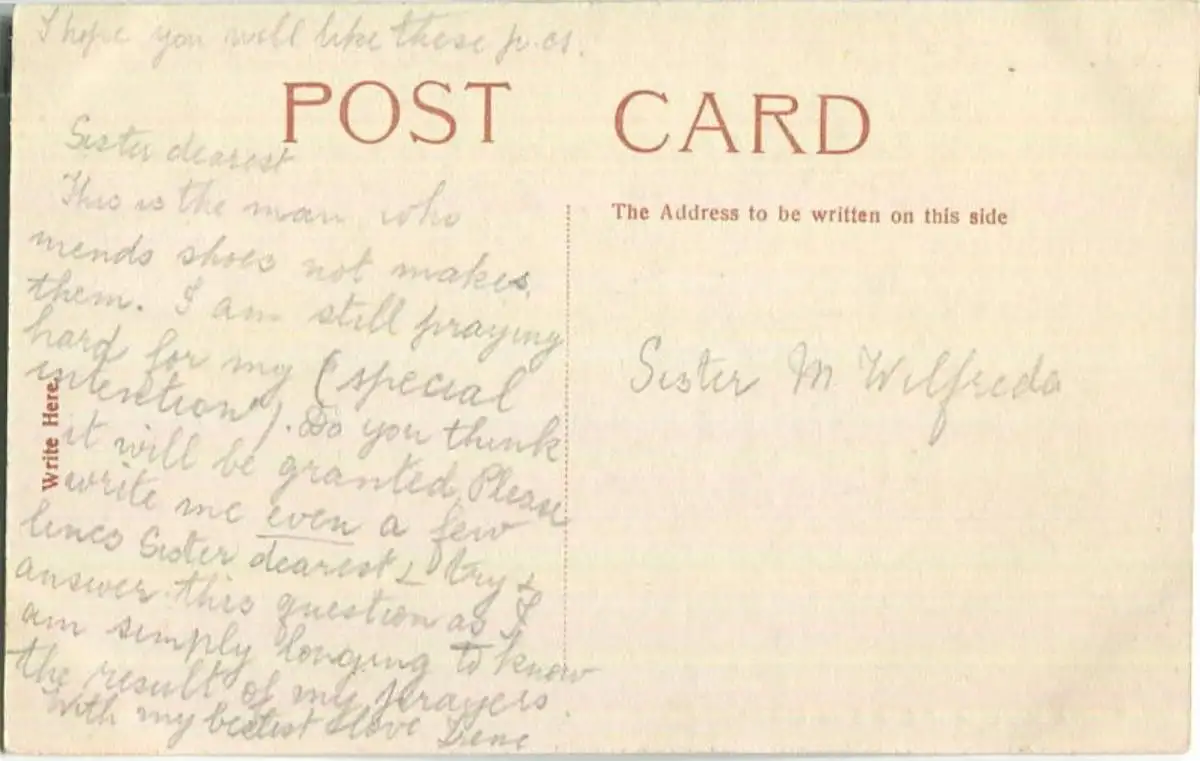 I hope you will like these p.cs.
POST CARD
Sister dearest
This is the man who
mends shoes not makes
them. I am still praying
hard for my (special
intention"). Do you think
it will be granted. Please
write me even a few
lines Sister dearest & try &
answer this question as I
am simply longing to know
the result of my prayers.
With my bestest love Irene
Write Here.
The Address to be written on this side
Sister M Wilfreda